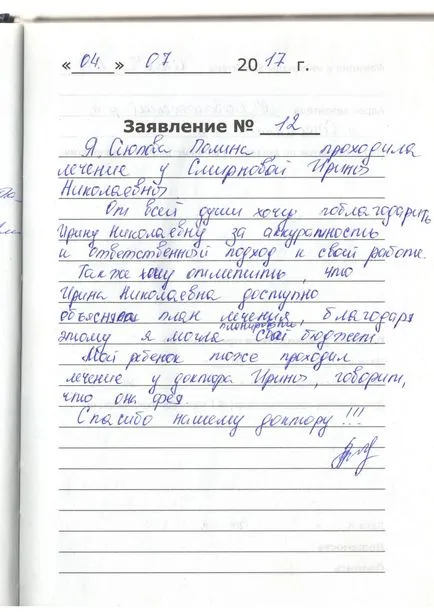 « 04. » 07 2017 г.
Заявление № 12
Я, Аюпова Полина проходила
лечение у Смирновой Ирины
Николаевны
От всей души хочу поблагодарить
Ирину Николаевну за аккуратность
и ответственный подход к своей работе.
Также хочу отметить, что
Ирина Николаевна доступно
объяснила план лечения, благодаря
этому я могла планировать свой бюджет.
Мой ребенок тоже проходил
лечение у доктора Ирины, говорит,
что она фея.
Спасибо нашему доктору!!!